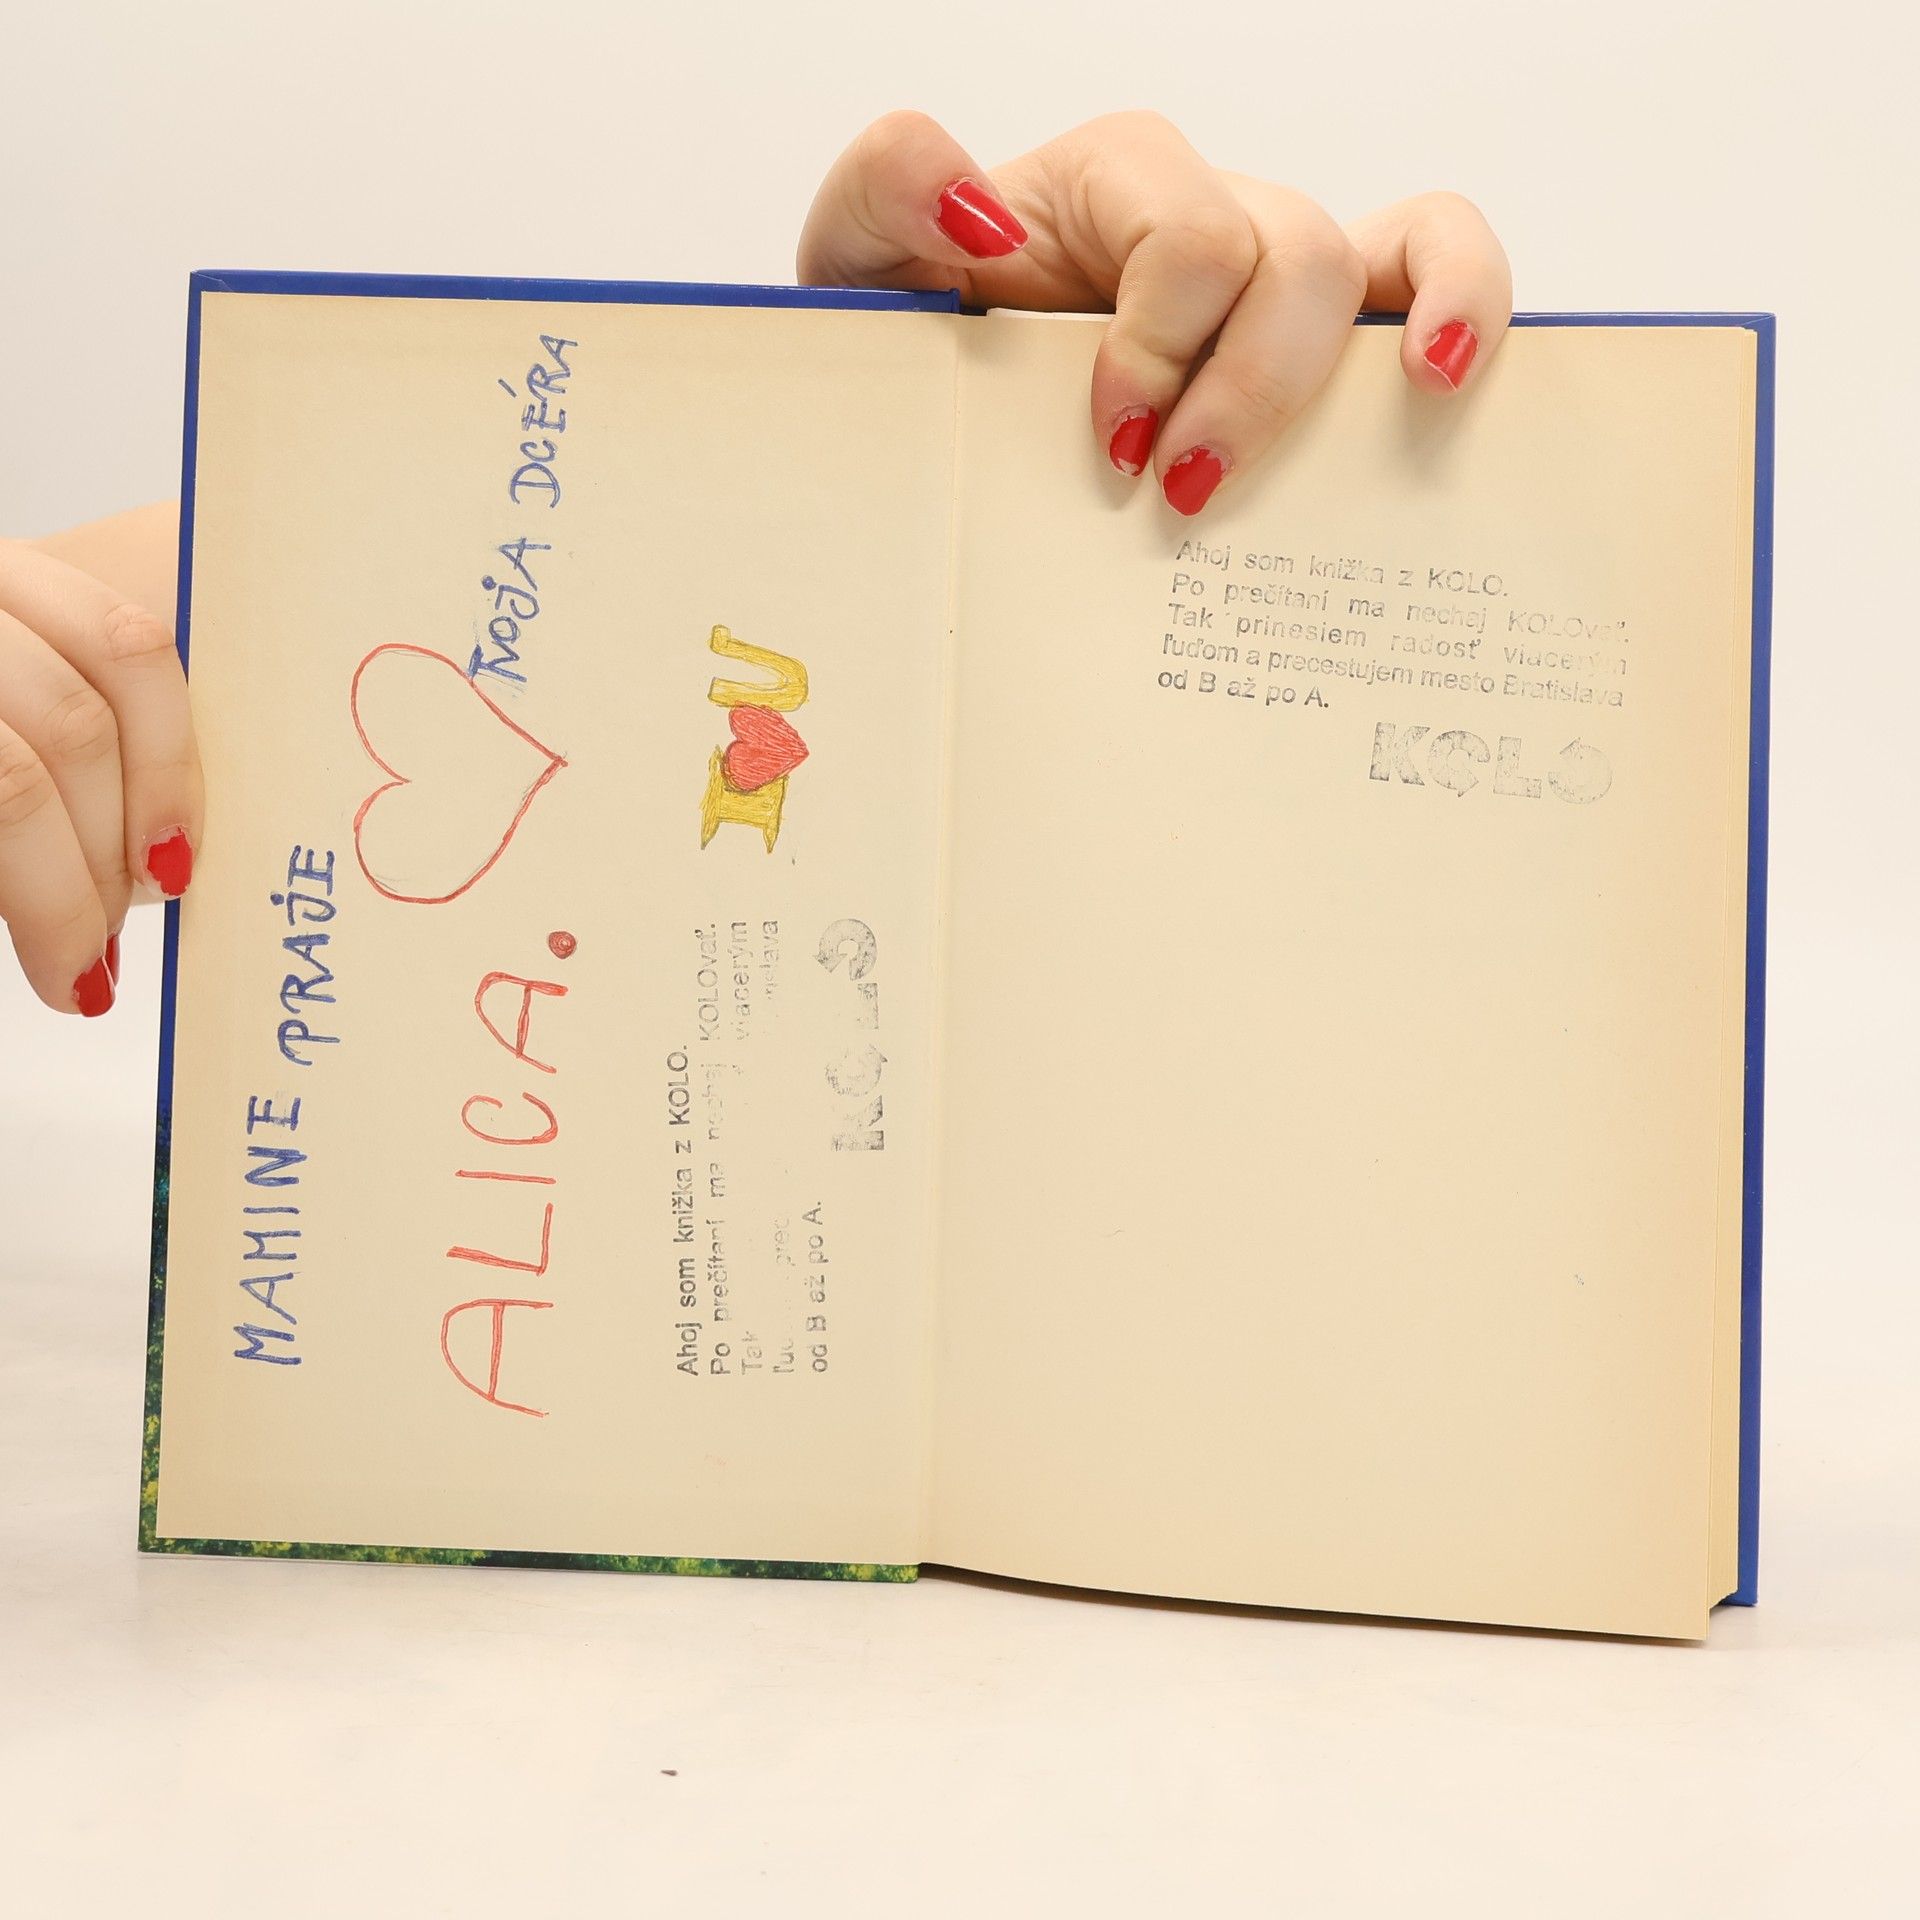 MAMINE PRAJE
ALICA.
TVOJA DCÉRA
I U
Ahoj som knižka z KOLO.
Po prečítaní ma nechaj KOLOvať.
Tak viacerým
od B až po A.
KOLO
Ahoj som knižka z KOLO.
Po prečítaní ma nechaj KOLOvať.
Tak prinesiem radosť viacerým
ľuďom a precestujem mesto Bratislava
od B až po A.
KOLO